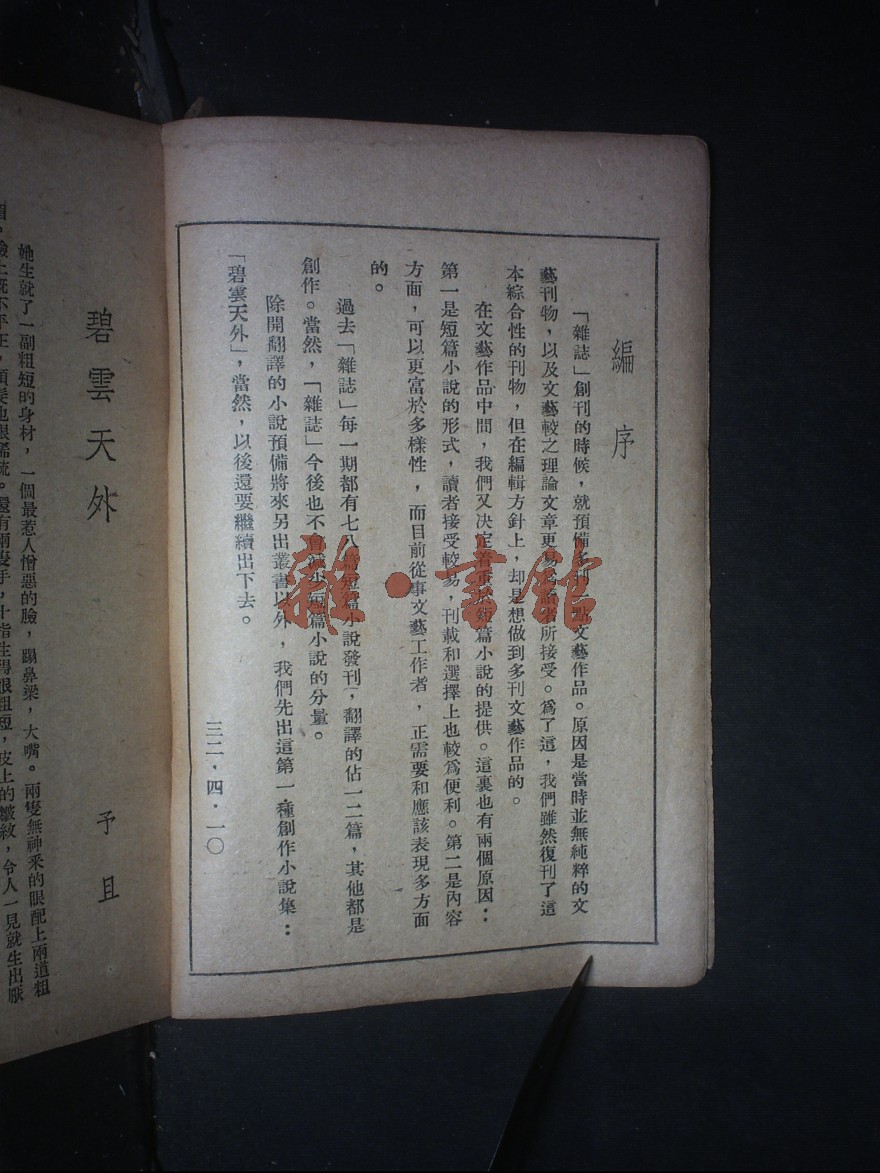 編序
「雜誌」創刊的時候，就預備多刊一點文藝作品。原因是當時並無純粹的文
藝刊物，以及文藝較之理論文章更易為讀者所接受。爲了這，我們雖然復刊了這
本綜合性的刊物，但在編輯方針上，却是想做到多刊文藝作品的。
在文藝作品中間，我們又決定着重於短篇小說的提供。這裏也有兩個原因：
第一是短篇小說的形式，讀者接受較易，刊載和選擇上也較爲便利。第二是內容
方面，可以更富於多樣性，而目前從事文藝工作者，正需要和應該表現多方面
的。
過去「雜誌」每一期都有七八篇短篇小說發刊，翻譯的佔一二篇，其他都是
創作。當然，「雜誌」今後也不會減少短篇小說的分量。
除開翻譯的小說預備將來另出叢書以外，我們先出這第一種創作小說集：
「碧雲天外」，當然，以後還要繼續出下去。
三二・四・一〇
雜・書館
碧雲天外
予且
她生就了一副粗短的身材，一個最惹人憎惡的臉，蹋鼻梁，大嘴。兩隻無神釆的眼配上兩道粗
眉。臉上既不平正，頭髮也很稀疏。還有兩隻手，十指生得很粗短，皮上的皺紋，令人一見就生出厭